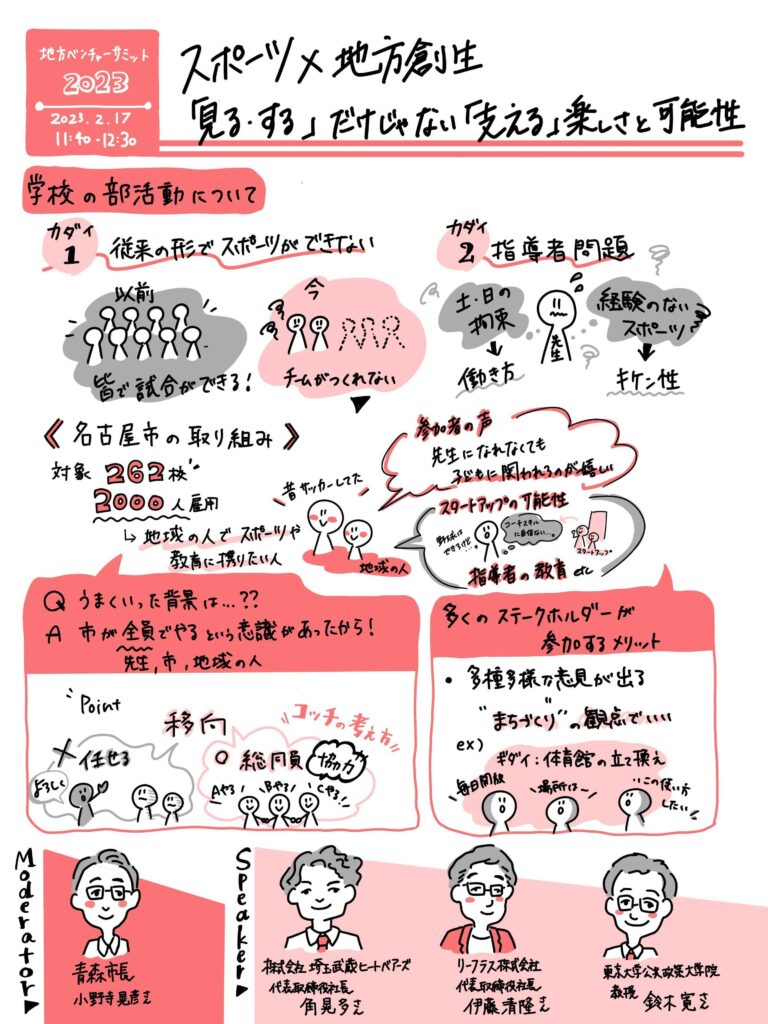 地方ベンチャーサミット
2023
2023.2.17
11:40-12:30
スポーツ×地方創生
「見る・する」だけじゃない「支える」楽しさと可能性
学校の部活動について
カダイ
1
従来の形でスポーツができない
以前
皆で試合ができる!
今
チームがつくれない
カダイ
2
指導者問題
土・日の
拘束
働き方
先生
経験のない
スポーツ
キケン性
《名古屋市の取り組み》
対象 262校
2000人雇用
↳地域の人でスポーツや
教育に携りたい人
昔サッカーしてた
地域の人
参加者の声
先生になれなくても
子どもに関われるのが嬉しい
スタートアップの可能性
野球は
できるけど…
コーチスキル
に自信ない…
スタートアップ
指導者の教育 etc
Q うまくいった背景は…??
A 市が全員でやるという意識があったから!
先生,市,地域の人
Point
移向
×任せる
よろしく
コッチの考え方
○総動員
協力
Aやる!
Bやる!
Cやる!
多くのステークホルダーが
参加するメリット
• 多種多様な意見が出る
"まちづくり"の観点でいい
ex)
ギダイ:体育館の立て換え
毎日開放
場所は
この使い方
したい!
Moderator
青森市長
小野寺晃彦さん
Speaker
株式会社埼玉武蔵ヒートベアーズ
代表取締役社長
角晃多さん
リーフラス株式会社
代表取締役社長
伊藤清隆さん
東京大学公共政策大学院
教授 鈴木寛さん